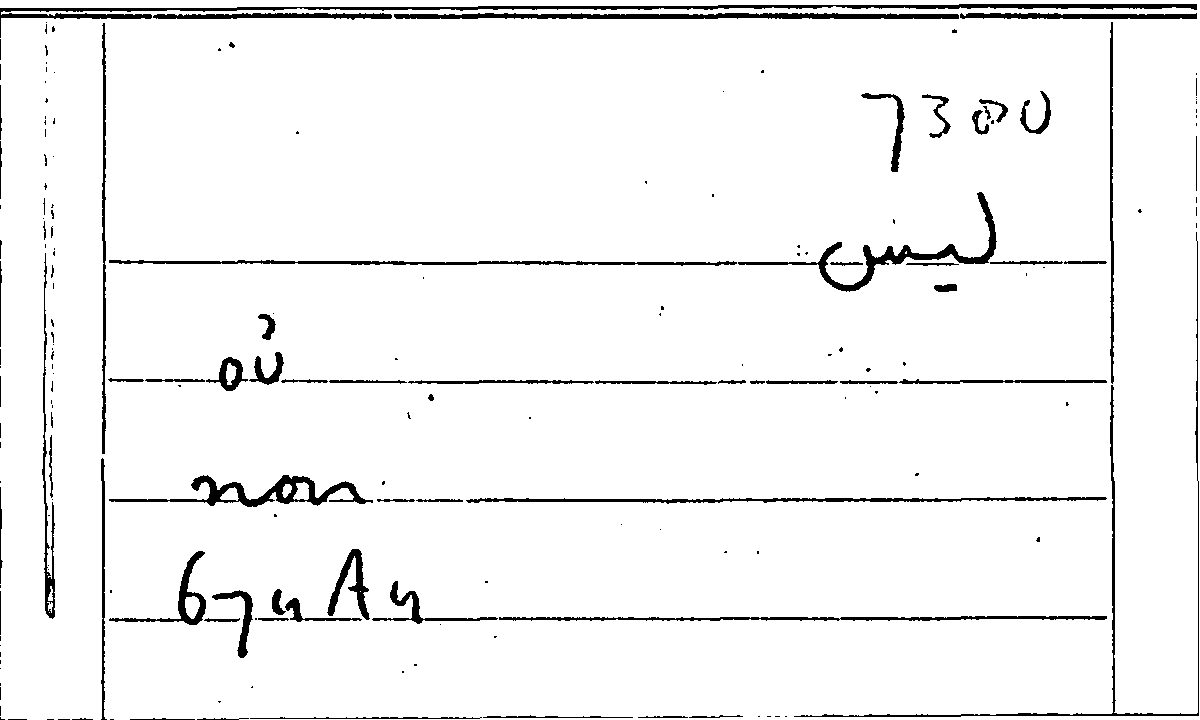 7300
ليس
où
non
67uAu